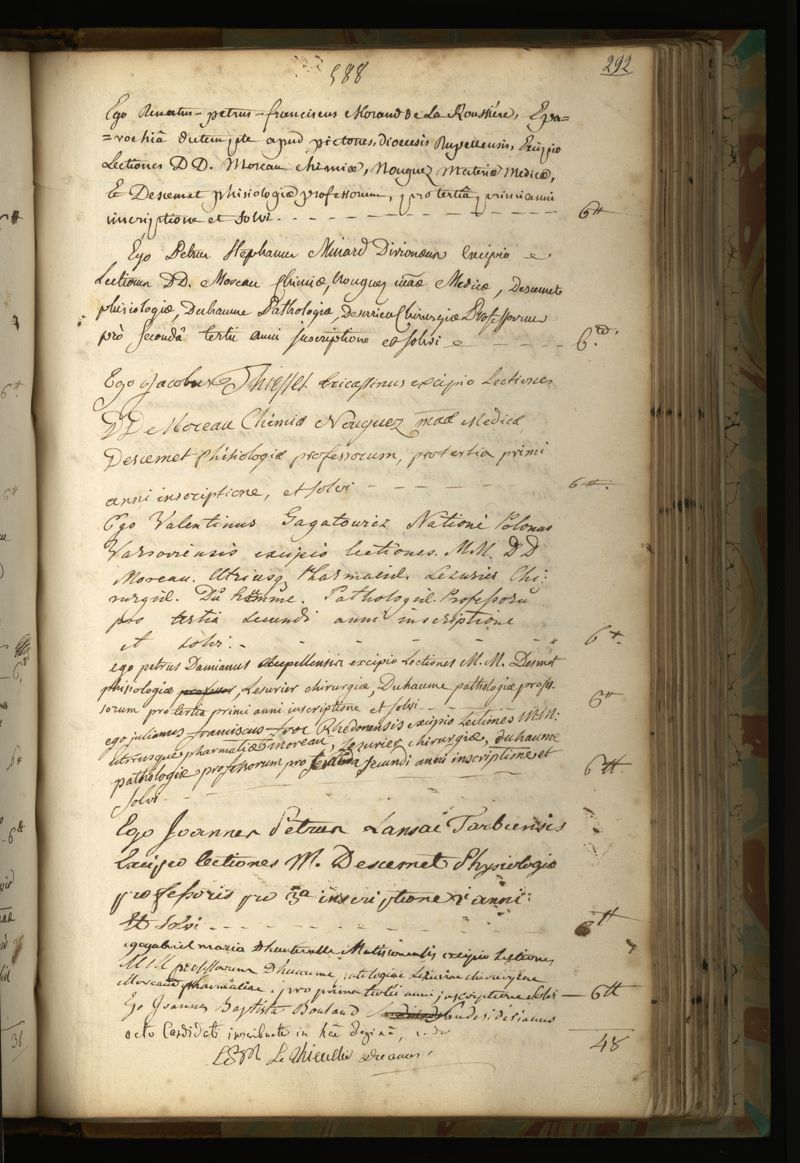 588
292
Ego Renatus-petrus-franciscus Morand de La Roussiére, E pa=
=rochiâ apud pictones, dioecesis Rupellensis, Excipio
Lectiones DD. Moreau chimiæ, Nouguez Materiæ Medicæ,
Et Descemet phisiologiæ professorum, pro tertiâ primi anni
inscriptione et solvi - - - - 6tt
Ego Petrus Stephanus Minard Excipio
Lectiones DD. Moreau Chimiæ, Nouguez mæ Medicæ, Descemet
phisiologiæ, Duhaume Pathologiæ, Chirurgiæ Professorum
pro secundâ tertii anni inscriptione et solvi - - - - 6
Ego Jacobus Thiesset tricassinus excipio Lectiones
DD. Moreau Chimiæ Nouguez mæ Medicæ,
Descemet Phisiologiæ professorum, pro tertia primi
anni inscriptione, et solvi - - - - 6tt.
Ego Valentinus Gagatowicz Natione Polonus
Varsoviensis excipio lectiones. M.M. DD
Moreau. Utriusq Pharmaciæ. Lezurier Chi:
rurgiæ. Du homme. Pathologiæ. Professorū
pro tertia secundi anni inscriptione
et solvi. - - - - 6tt.
ego petrus Damianus excipio Lectiones M.M. Desmet
phisiologiæ, Lesurier chirurgiæ, Duhaume pathologiæ profes-
sorum pro tertia primi anni inscriptione et solvi - - - - 6tt
ego julianus franciscus Rhedonensis excipio Lectiones MM:
utriusque pharmatiæ moreau, Lezurier chirurgiæ, duhaume
pathologiæ professorum pro secundi anni inscriptione et
solvi - - - - 6tt.
Ego Joannes Petrus Lansac Tarbiensis
Excipio lectiones M. Descemet Physiologiæ
professoris pro 3a inscriptione anni
Et solvi - - - - 6tt
ego gabriel maria Matisconensis excipio Lectiones
MM professorum Duhaume, patologiæ Lezurier chirurgiæ
Moreau pharmaciæ, pro prima tertii anni inscriptione solvi - 6tt
Ego Joannes Baptista
octo Candidati inscribuntur in hac paginâ,
48
Le Thieullier Decanus.